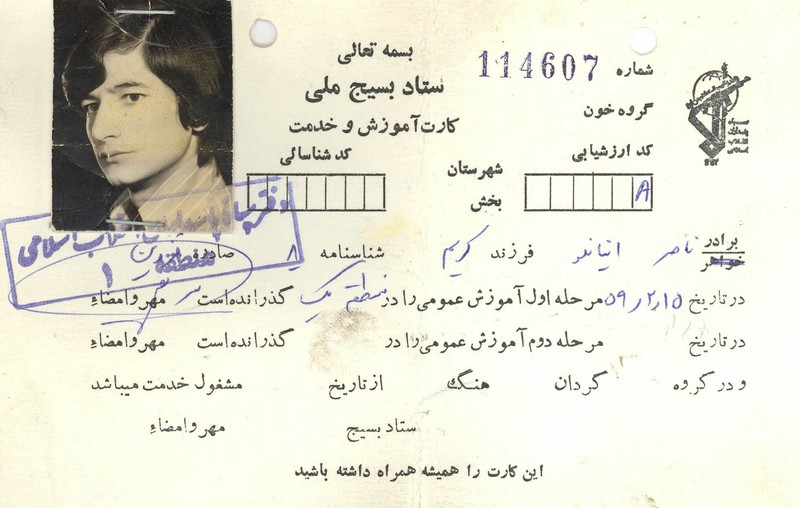 بسمه تعالی
ستاد بسیج ملی
کارت آموزش و خدمت
شماره 114607
گروه خون
کد ارزشیابی
A
شهرستان
بخش
کد شناسائی
برادر
خواهر
ناصر فرزند کریم شناسنامه ۸ صادره
در تاریخ ۵۹٫۲٫۱۵ مرحله اول آموزش عمومی را در منطقه یک گذرانده است مهر و امضاء
در تاریخ مرحله دوم آموزش عمومی را در گذرانده است مهر و امضاء
و در گروه گردان هنگ از تاریخ مشغول خدمت میباشد
ستاد بسیج مهر و امضاء
این کارت را همیشه همراه داشته باشید
دفتر سپاه پاسداران انقلاب اسلامی
منطقه ۱